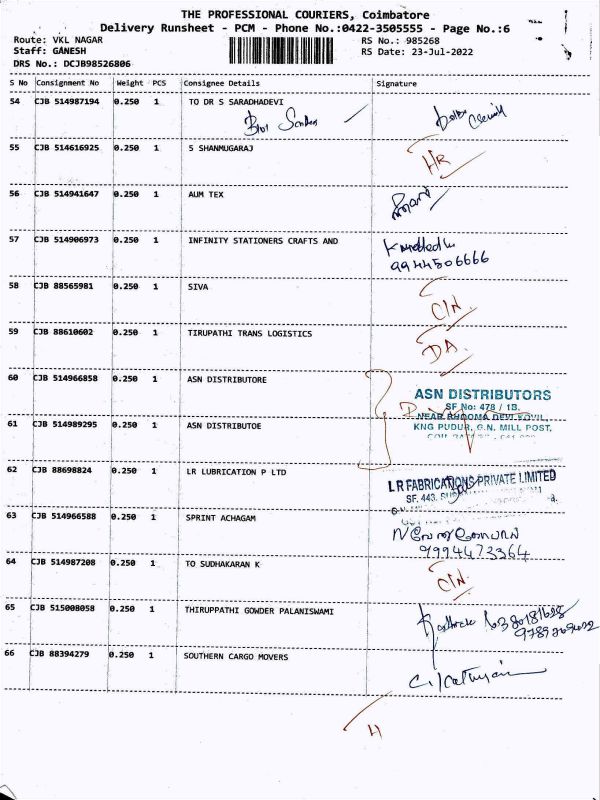 THE PROFESSIONAL COURIERS, Coimbatore
Delivery Runsheet - PCM - Phone No.:0422-3505555 - Page No.:6
Route: VKL NAGAR
RS No.: 985268
Staff: GANESH
RS Date: 23-Jul-2022
DRS No.: DCJB98526806
S No Consignment No Weight PCS Consignee Details Signature
54 CJB 514987194 0.250 1 TO DR S SARADHADEVI
55 CJB 514616925 0.250 1 S SHANMUGARAJ
HR
56 CJB 514941647 0.250 1 AUM TEX
57 CJB 514906973 0.250 1 INFINITY STATIONERS CRAFTS AND
9944506666
58 CJB 88565981 0.250 1 SIVA
CIN
59 CJB 88610602 0.250 1 TIRUPATHI TRANS LOGISTICS
DA
60 CJB 514966858 0.250 1 ASN DISTRIBUTORE
ASN DISTRIBUTORS
SF No: 478 / 1B,
NEAR BHOOMA DEVI KOVIL,
61 CJB 514989295 0.250 1 ASN DISTRIBUTOE
KNG PUDUR, G.N. MILL POST,
62 CJB 88698824 0.250 1 LR LUBRICATION P LTD
LR FABRICATIONS PRIVATE LIMITED
SF. 443,
63 CJB 514966588 0.250 1 SPRINT ACHAGAM
9994473364
64 CJB 514987208 0.250 1 TO SUDHAKARAN K
CIN
65 CJB 515008058 0.250 1 THIRUPPATHI GOWDER PALANISWAMI
66 CJB 88394279 0.250 1 SOUTHERN CARGO MOVERS
H